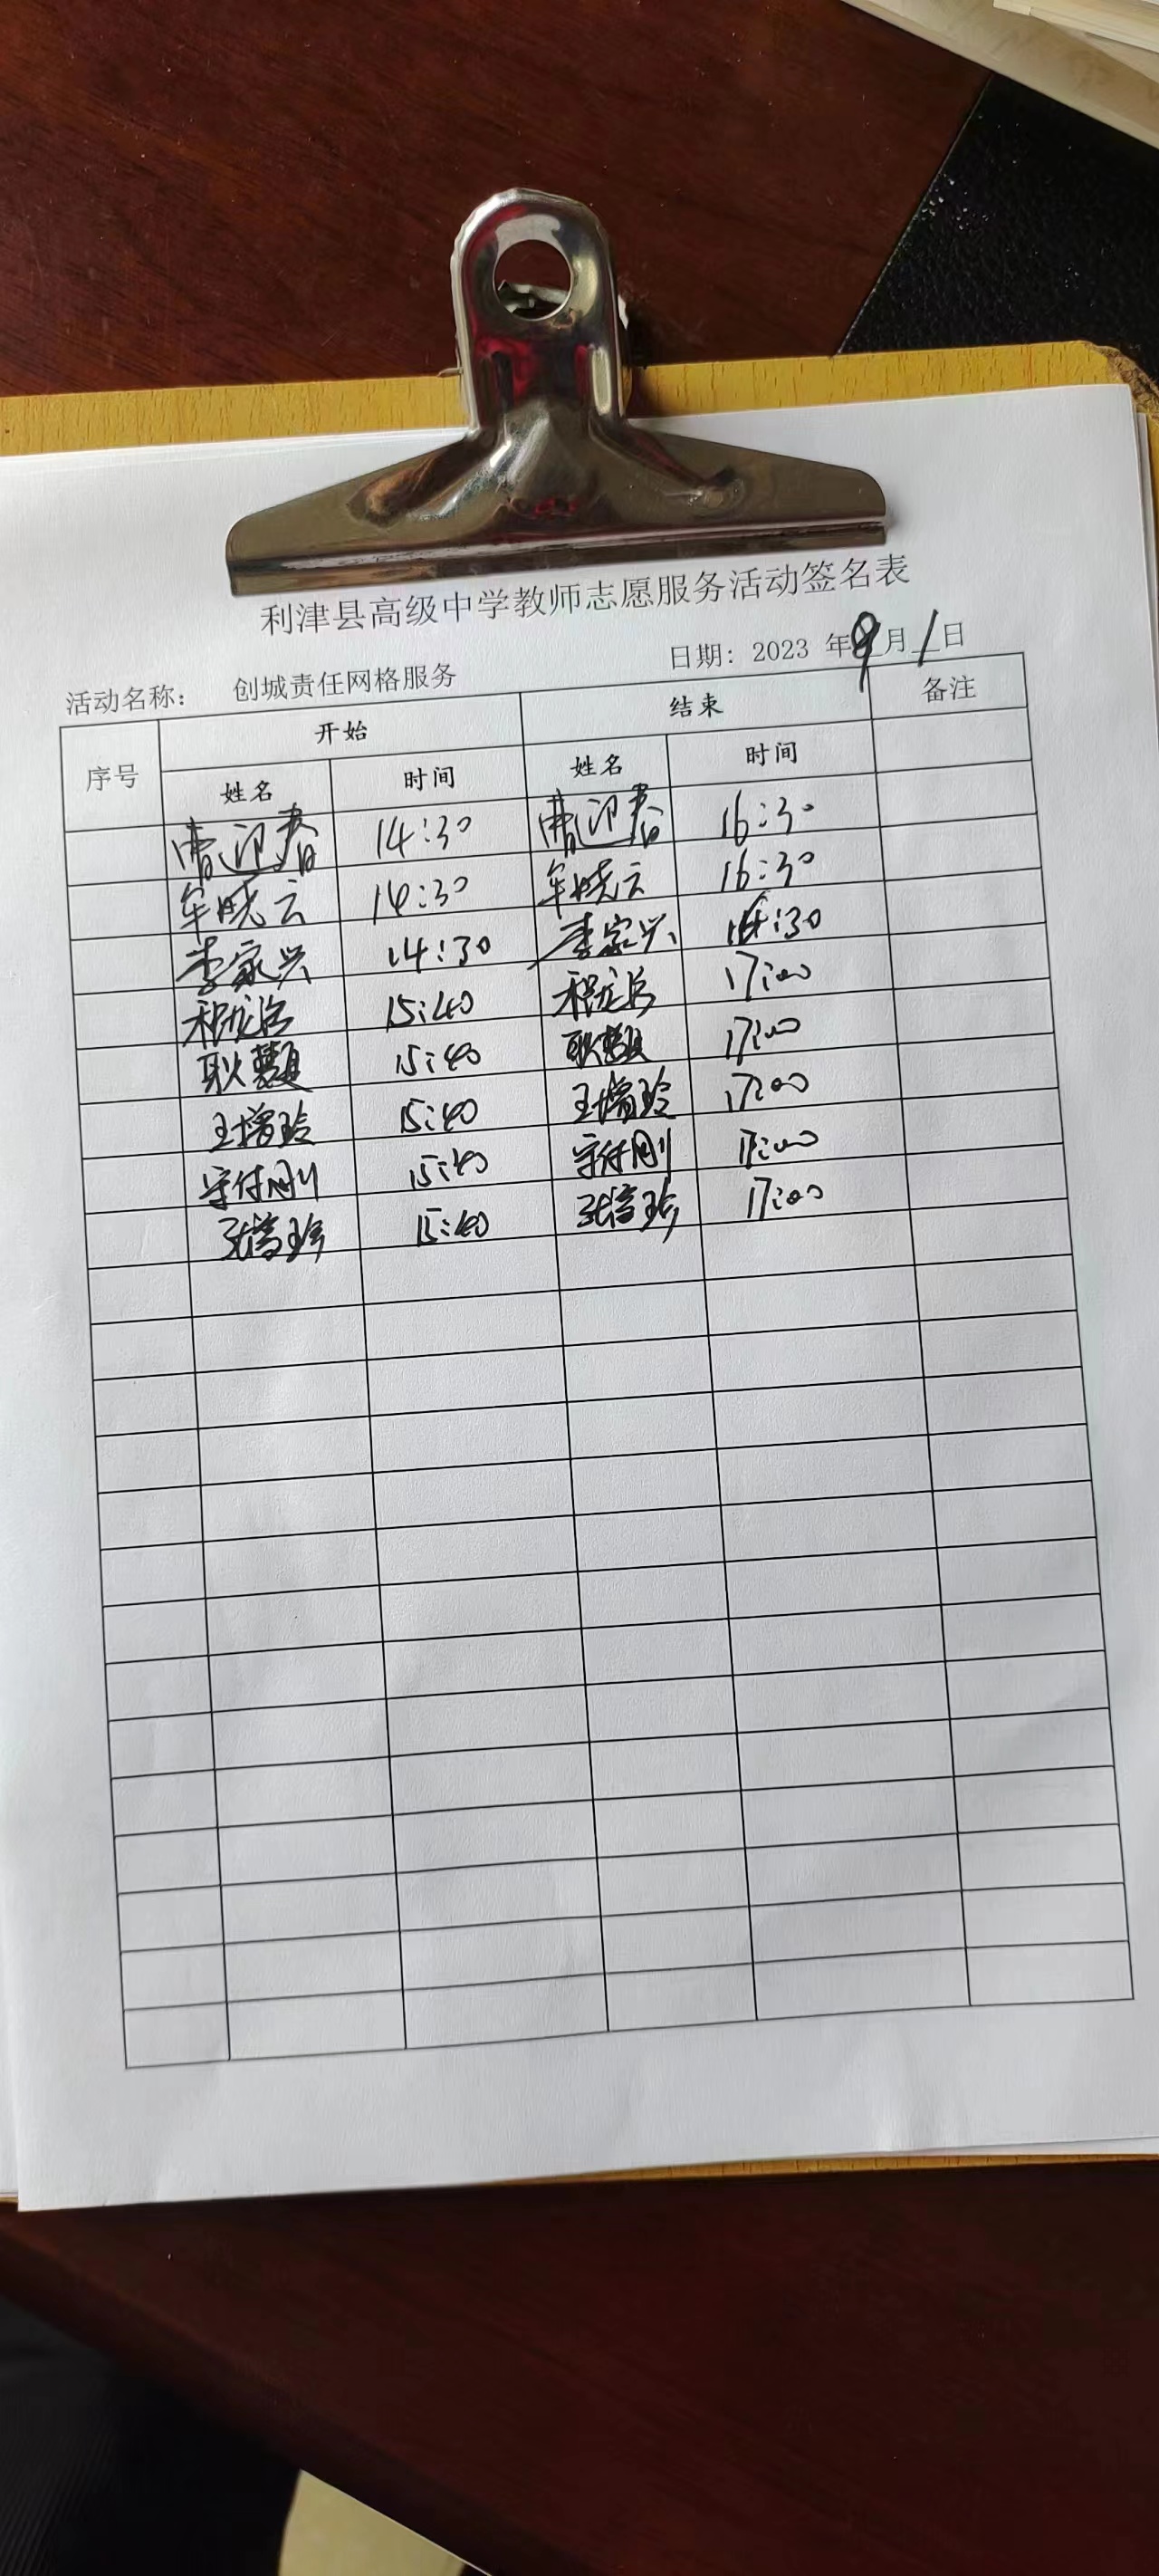 利津县高级中学教师志愿服务活动签名表
活动名称： 创城责任网格服务 日期: 2023 年 9 月 1 日
序号 开始 结束 备注
姓名 时间 姓名 时间
曹迎春 14:30 曹迎春 16:30
牟晓云 14:30 牟晓云 16:30
李家兴 14:30 李家兴 16:30
15:40 17:00
耿慧 15:40 耿慧 17:00
王增玲 15:40 王增玲 17:00
付刚 15:40 付刚 17:00
张 15:40 张 17:00